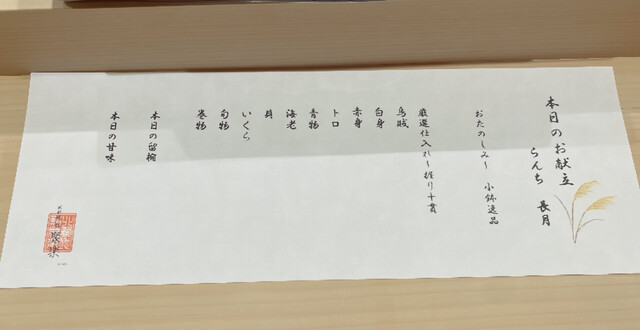 本日のお献立
らんち 長月
おたのしみ〜 小鉢逸品
厳選仕入れ〜握り十貫
烏賊
白身
赤身
トロ
青物
海老
貝
いくら
旬物
巻物
本日の留椀
本日の甘味